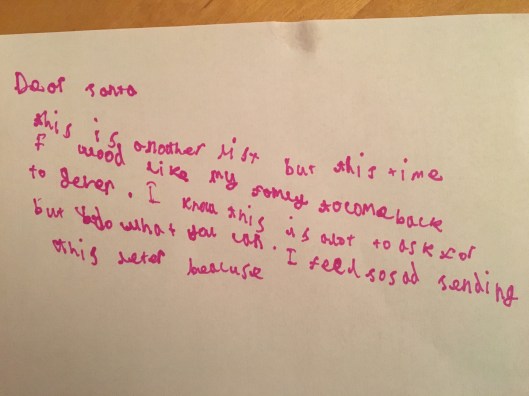 Dear santa
this is another list but this time
I wood like my famey to come back
to gever. I know this is alot to ask for
but do what you can. I feel so sad sending
this leter beacuse